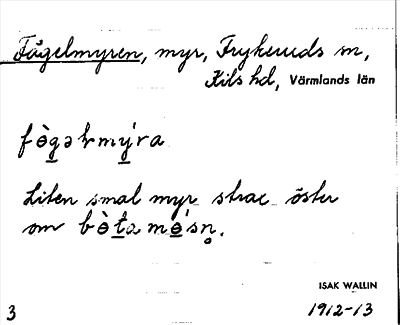 Fågelmyren, myr, Frykeruds sn,
Kils hd, Värmlands län
fò̱gəlmý̱ra
Liten smal myr strax öster
om bò̱ta mó̱sn̥.
ISAK WALLIN
3 1912-13